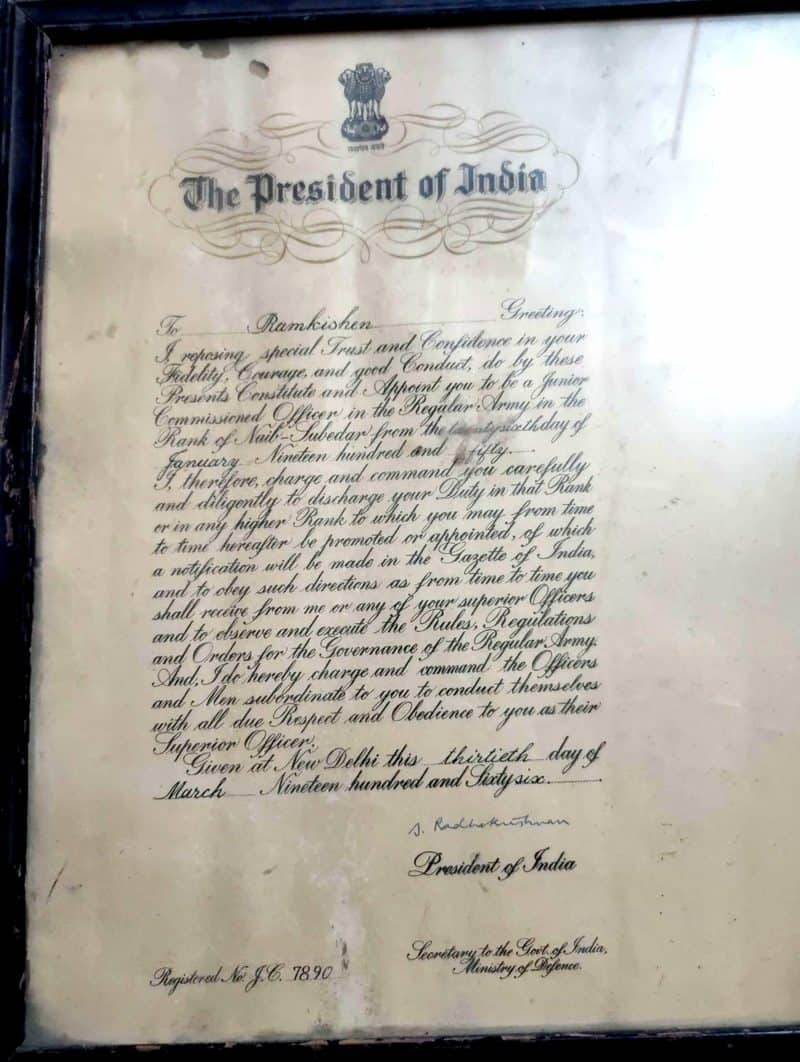 The President of India
To Ramkishen Greeting:
I, reposing special Trust and Confidence in your
Fidelity, Courage, and good Conduct, do by these
Presents Constitute and Appoint you to be a Junior
Commissioned Officer in the Regular Army in the
Rank of Naib-Subedar from the twentysixth day of
January Nineteen hundred and fifty.
I, therefore, charge and command you carefully
and diligently to discharge your Duty in that Rank
or in any higher Rank to which you may from time
to time hereafter be promoted or appointed, of which
a notification will be made in the Gazette of India,
and to obey such directions as from time to time you
shall receive from me or any of your superior Officers
and to observe and execute the Rules, Regulations
and Orders for the Governance of the Regular Army.
And, I do hereby charge and command the Officers
and Men subordinate to you to conduct themselves
with all due Respect and Obedience to you as their
Superior Officer.
Given at New Delhi this thirtieth day of
March Nineteen hundred and Sixty six.
S. Radhakrishnan
President of India
Secretary to the Govt. of India,
Ministry of Defence.
Registered No. J.C. 7890